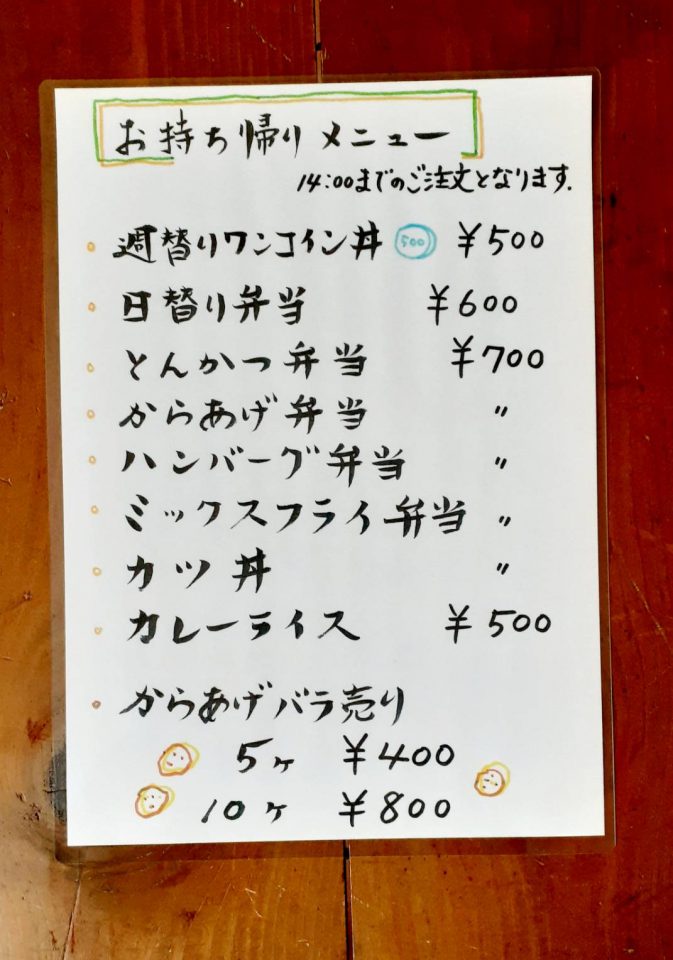 お持ち帰りメニュー
14:00までのご注文となります.
週替りワンコイン丼 500 ¥500
日替り弁当 ¥600
とんかつ弁当 ¥700
からあげ弁当 〃
ハンバーグ弁当 〃
ミックスフライ弁当 〃
カツ丼 〃
カレーライス ¥500
からあげバラ売り
5ヶ ¥400
10ヶ ¥800